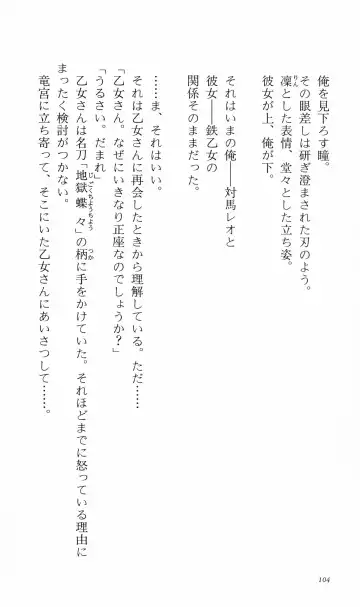 俺を見下ろす瞳。
その眼差しは研ぎ澄まされた刃のよう。
凜とした表情、堂々とした立ち姿。
彼女が上、俺が下。
それはいまの俺――対馬レオと
彼女――鉄乙女の
関係そのままだった。
……ま、それはいい。
それは乙女さんに再会したときから理解している。ただ……
「乙女さん。なぜにいきなり正座なのでしょうか？」
「うるさい。だまれ」
乙女さんは名刀「地獄蝶々」の柄に手をかけていた。それほどまでに怒っている理由に
まったく検討がつかない。
竜宮に立ち寄って、そこにいた乙女さんにあいさつして……。
104